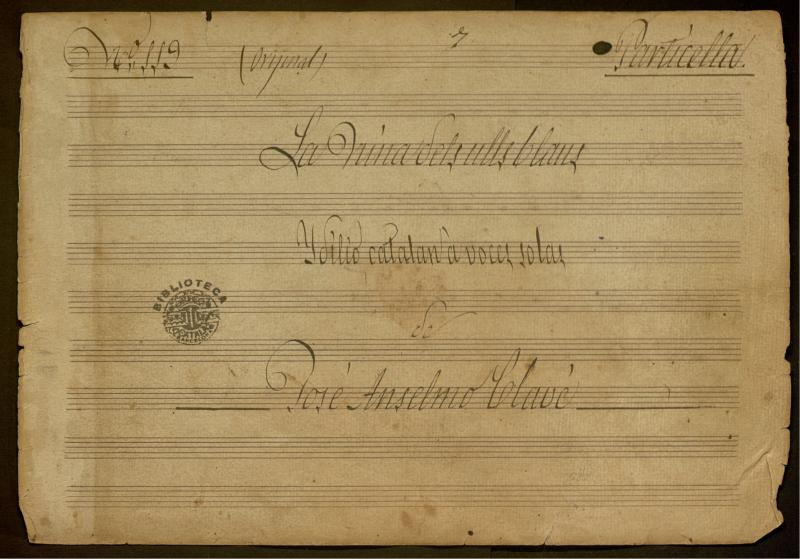 Nº 119 (Original) Particella.
La Nina dels ulls blaus
Ydilio catalan à voces solas
de
José Anselmo Clavé
BIBLIOTECA